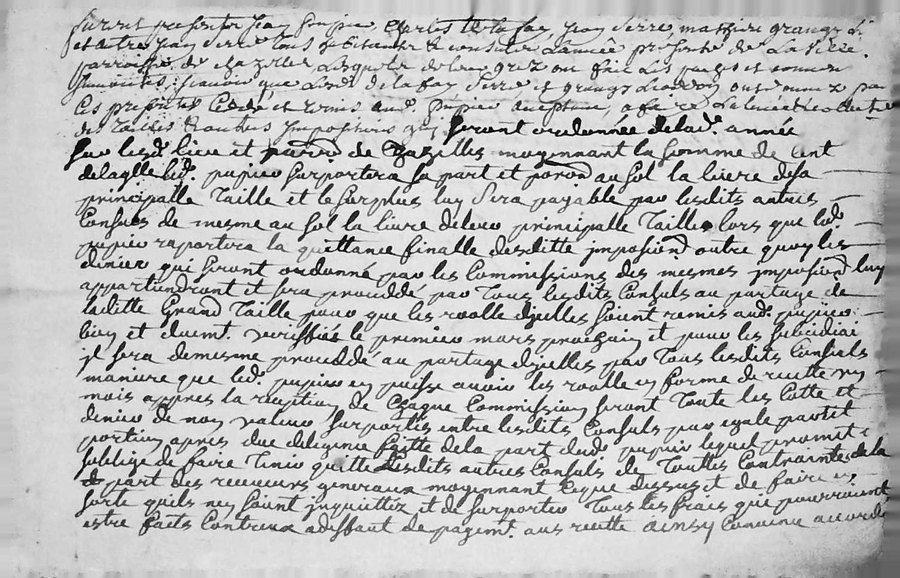 furent presents Jean pupier Charles de la fay, Jean Serre, mathieu grange
et autre Jean Serre tous habitants et consuls l'année presente de la
parroisse de chazelles lesquels de leur grez ont fait les pactes et
scavoir que lesd. de la fay Serre et grange ont remis par
ces presentes Cedde et remis aud. pupier acceptant, a faire la levée
des tailles et autres Impositions qui seront ordonnée de lad. année
sur lesd. lieu et parro. de Chazelles moyennant la somme de Cent
de laqlle led. pupier surportera sa part et poron au sol la livre de sa
principalle Taille et le surplus luy sera payable par lesdits autres
Consuls de mesme au sol la livre de leur principalle Taille lors que led.
pupier raportera la quittance finalle desditte imposion outre quoy les
denier qui seront ordonné par les Commissions des mesmes imposion luy
appartiendront et sera proceddé par Tous lesdits Consuls au partage de
laditte Grand Taille pour que les roolle dicelles soient remis aud. pupier
bien et duemt. veriffiés le premier mars prochain et pour les subcidiai
Jl sera de mesme proceddé au partage dicelles par Tous lesdits Consuls
maniere que led. pupier en puisse avoir les roolle en forme de recette un
mois appres la reception de Chaque Commission seront Toute les Cotte et
denier de non valeur surportés entre lesdits Consuls par egale part et
portion apres due diligence faitte de la part dud. pupier lequel promet
soblige de faire Tenir quitte lesdits autres Consuls de Touttes Contraintes de la
part des receveurs generaux moyennant ce que dessus et de faire en
sorte quils ney soient inquiettez et de surporter Tous les frais qui pourroient
estre faits Contreux a deffaut de payemt. aus recette ainsy Convenu accordé